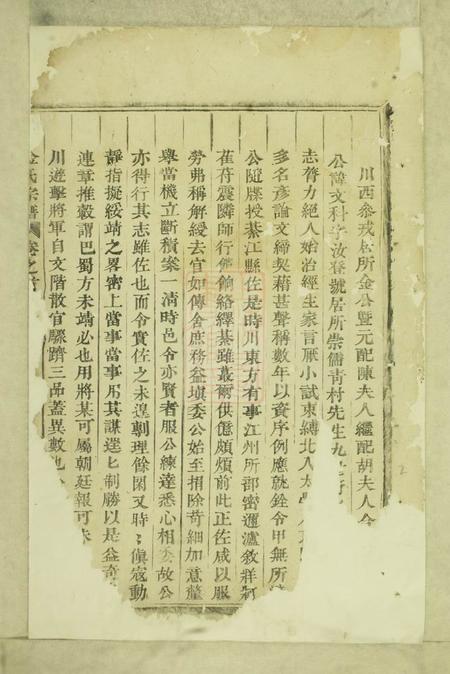 川西叅戎居所金公暨元配陳夫人繼配胡夫人合
公諱文科字汝登號居所崇儒靑村先生九
志膂力絕人始治經生家言凧小試束縛北入太
多名彥論文締契藉甚聲稱數年以資序例應就銓令甲無所
公隨牒授綦江縣佐是時川東方有事江州所部密邇瀘敘牂
萑苻震隣師行餽餉絡繹綦雖蕞爾供億頗煩前此正佐咸以服
勞弗稱解綬去官如傳舍庶務益塡委公始至捐除苛細加意釐
舉當機立斷積案一淸時邑令亦賢者服公練達悉心相委故公
亦得行其志雖佐也而令實佐之未遑劇理餘閑又時時偵寇動
靜指擬綏靖之畧密上當事當事用其謀逹匕制勝以是益奇
連章推轂謂巴蜀方未靖必也用將某可屬朝廷報可
川遊擊將軍自文階散官驟躋三品蓋異數也
金氏宗譜 卷之